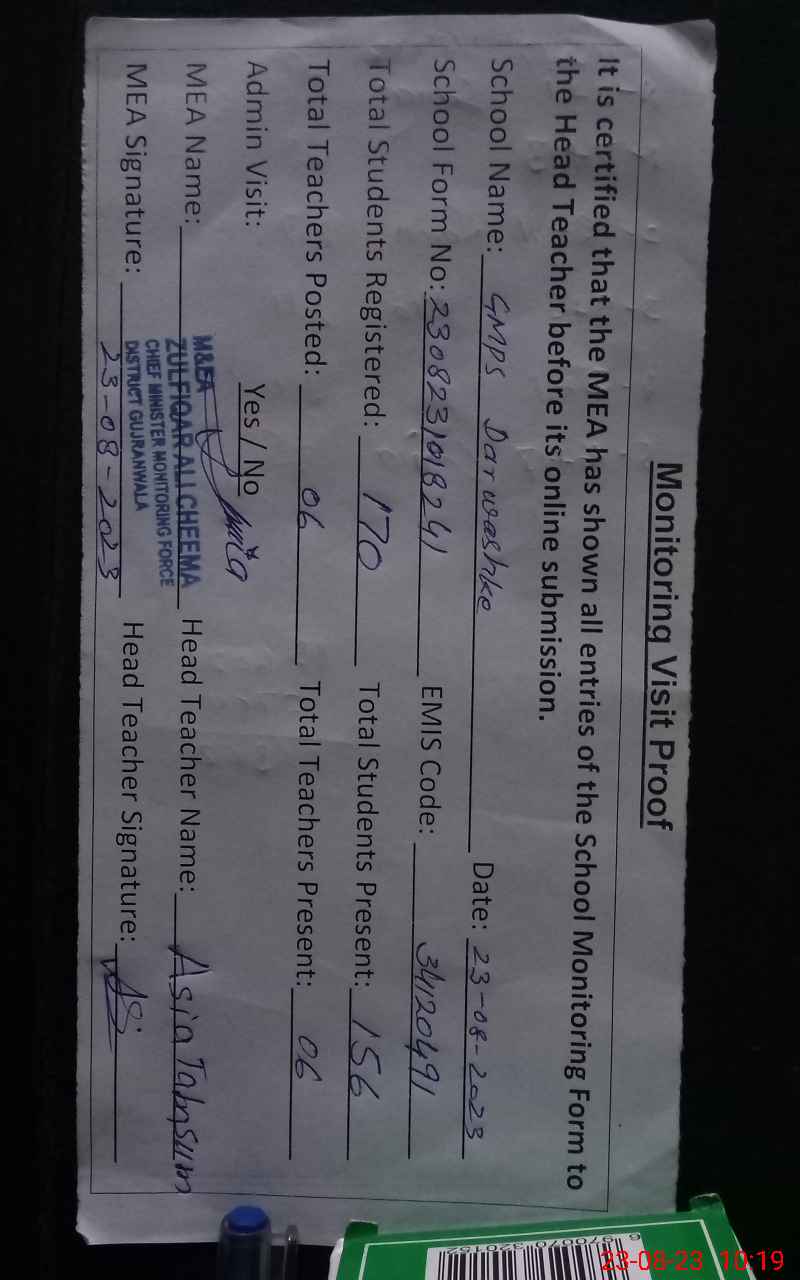 Monitoring Visit Proof
It is certified that the MEA has shown all entries of the School Monitoring Form to
the Head Teacher before its online submission.
School Name: GMPS Darweshke Date: 23-08-2023
School Form No: 2308231018241 EMIS Code: 34120491
Total Students Registered: 170 Total Students Present: 156
Total Teachers Posted: 06 Total Teachers Present: 06
Admin Visit: Yes / No
M&EA
MEA Name: ZULFIQAR ALI CHEEMA Head Teacher Name: Asia Tabnsum
CHIEF MINISTER MONITORING FORCE
DISTRICT GUJRANWALA
MEA Signature: 23-08-2023 Head Teacher Signature:
23-08-23 10:19